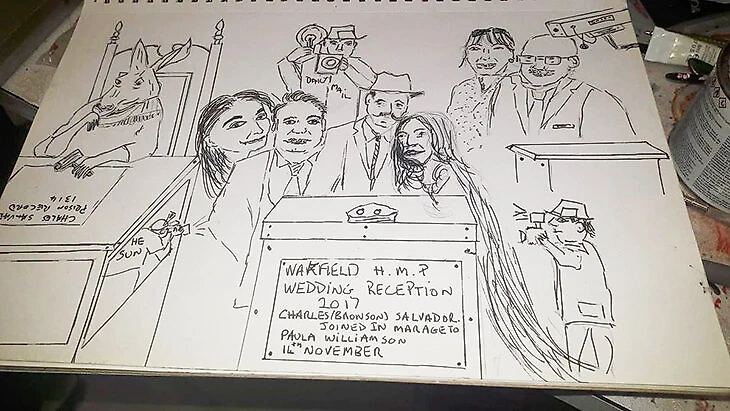 DAILY
MAIL
PRISON RECORD
1314
HE
SUN
WAKFIELD H.M.P
WEDDING RECEPTION
2017
CHARLES (BRONSON) SALVADOR.
JOINED IN MARAGE TO
PAULA WILLIAMSON
14th NOVEMBER